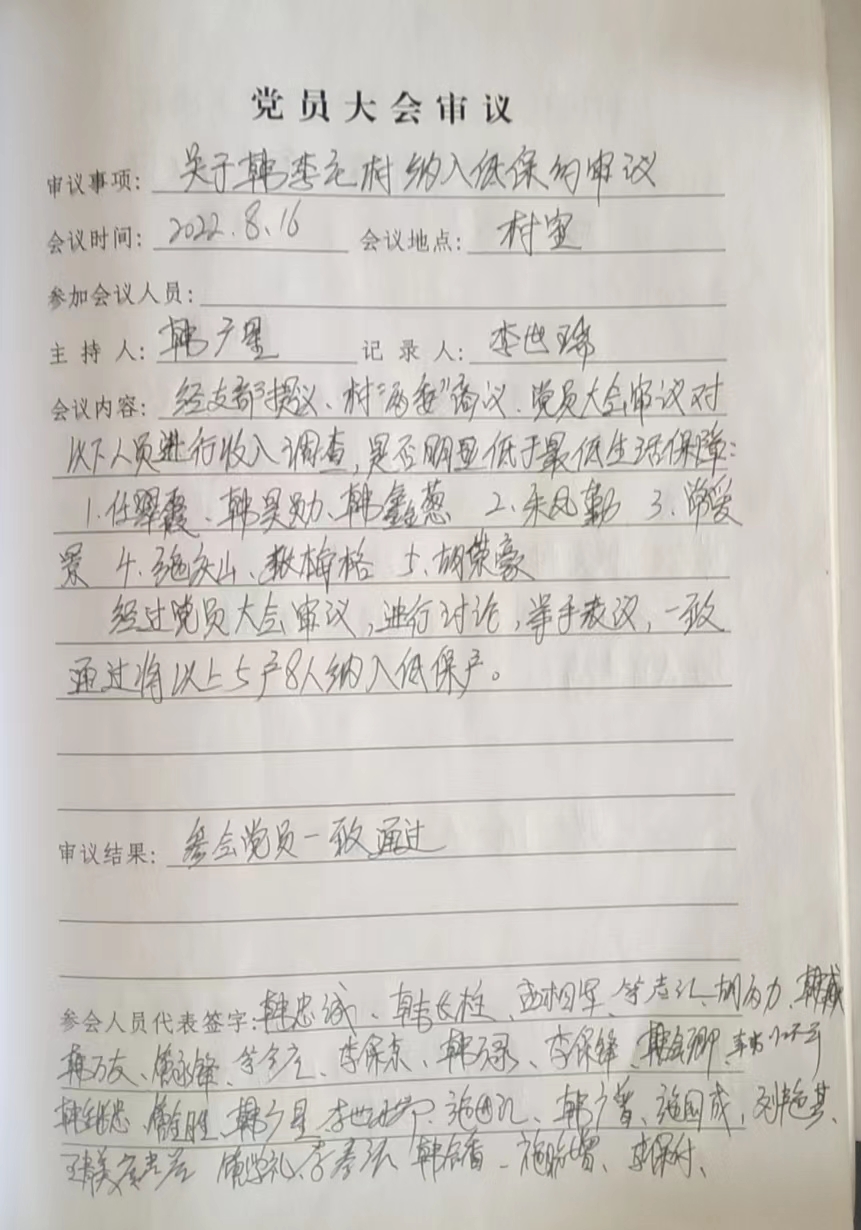 党员大会审议
审议事项: 关于韩李元村纳入低保的审议
会议时间: 2022.8.16 会议地点: 村室
参加会议人员:
主持人: 韩广星 记录人: 李世瑞
会议内容: 经支部提议、村“两委”商议、党员大会审议对
以下人员进行收入调查,是否明显低于最低生活保障:
1.任翠霞、韩昊勋、韩鑫葱 2.朱凤勤 3.常爱
景 4.施庆山、梅格 5.胡荣豪
经过党员大会审议,进行讨论,举手表议,一致
通过将以上5户8人纳入低保户。
审议结果: 参会党员一致通过
参会人员代表签字: 韩忠诚、韩长柱、相军、胡为力、韩
韩万友、永锋、李保东、韩、李保锋、韩
韩、韩广星 李世瑞、施、韩广、施国成、刘艳其、
学礼、韩、施、李保付、